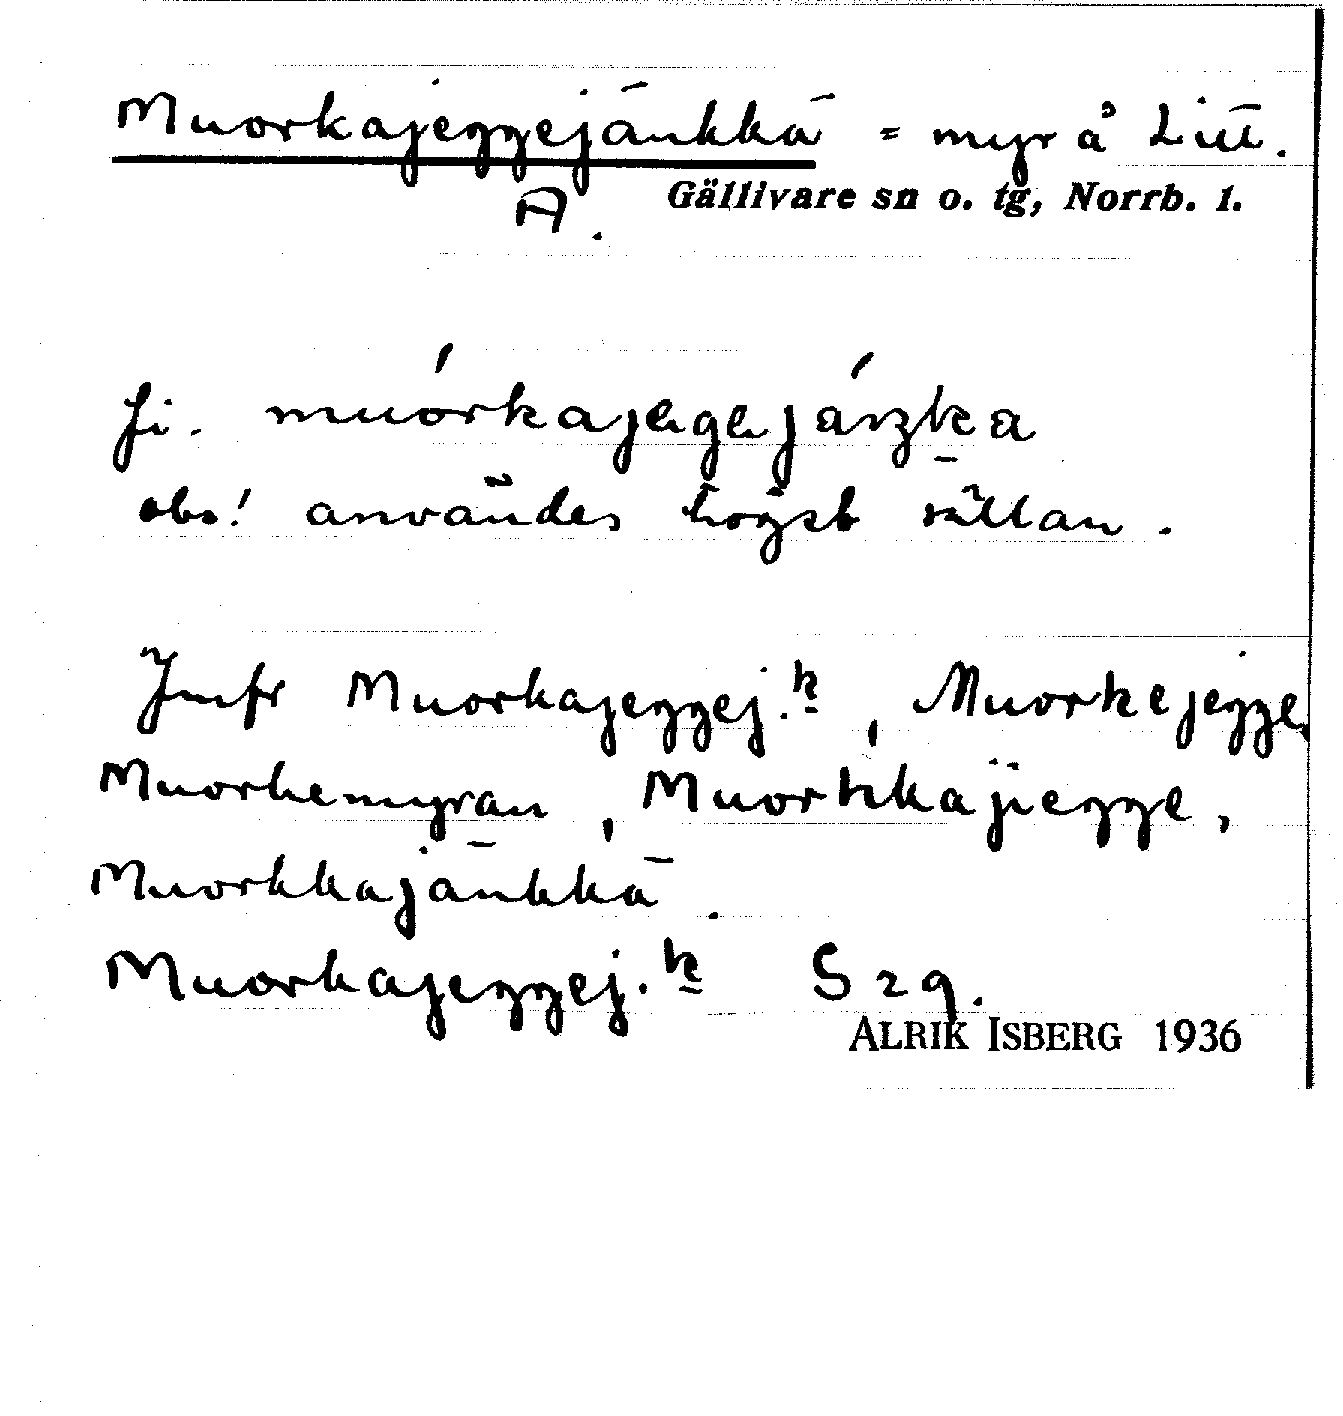 Muorkajeggejänkkä = myr å Litt.
A. Gällivare sn o. tg, Norrb. l.
fi.
obs! användes högst sällan.
Jmfr Muorkajeggej.k, Muorkejegge,
Muorkemyran, Muorkkajiegge,
Muorkkajänkkä.
Muorkajeggej.k S 29.
ALRIK ISBERG 1936